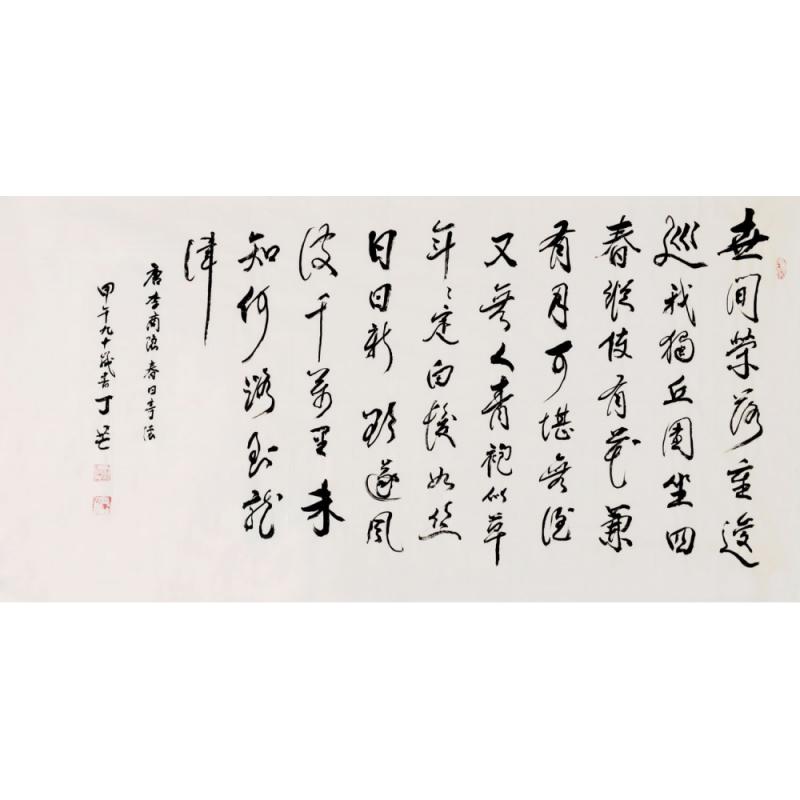 世間榮落重逡
巡我獨丘園坐四
春縱使有花兼
有月可堪無酒
又無人青袍似草
年々定白髮如絲
日日新欲逐風
波千萬里未
知何路到龍
津
唐李商隱春日寄懷
甲午九十歲書丁芒